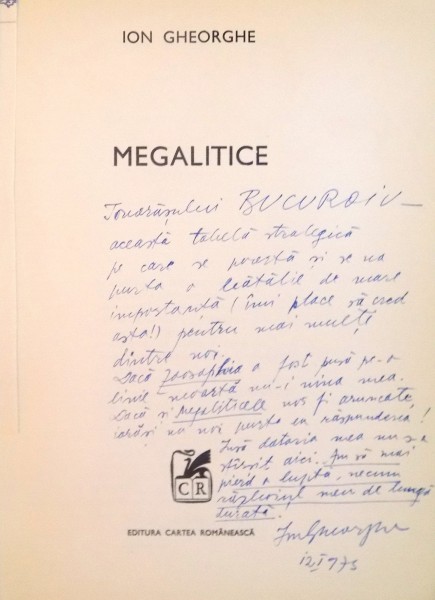 ION GHEORGHE
MEGALITICE
Tovarășului BUCUROIU –
această tabelă strategică
pe care se poartă și se va
purta o bătălie de mare
importanță (îmi place să cred
asta!) pentru mai mulți
dintre noi.
Dacă Zoosophia a fost pusă pe-o
linie moartă nu-i vina mea.
Dacă și Megaliticele vor fi aruncate,
iarăși nu voi purta eu răspunderea!
Însă datoria mea nu s-a
sfîrșit aici. Eu să mai
pierd o luptă, necum
războiul meu de lungă
durată.
Ion Gheorghe
12 I 973
CR
EDITURA CARTEA ROMÂNEASCĂ